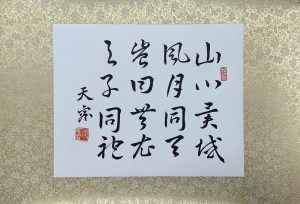 山川異域
風月同天
豈曰無衣
与子同袍
天